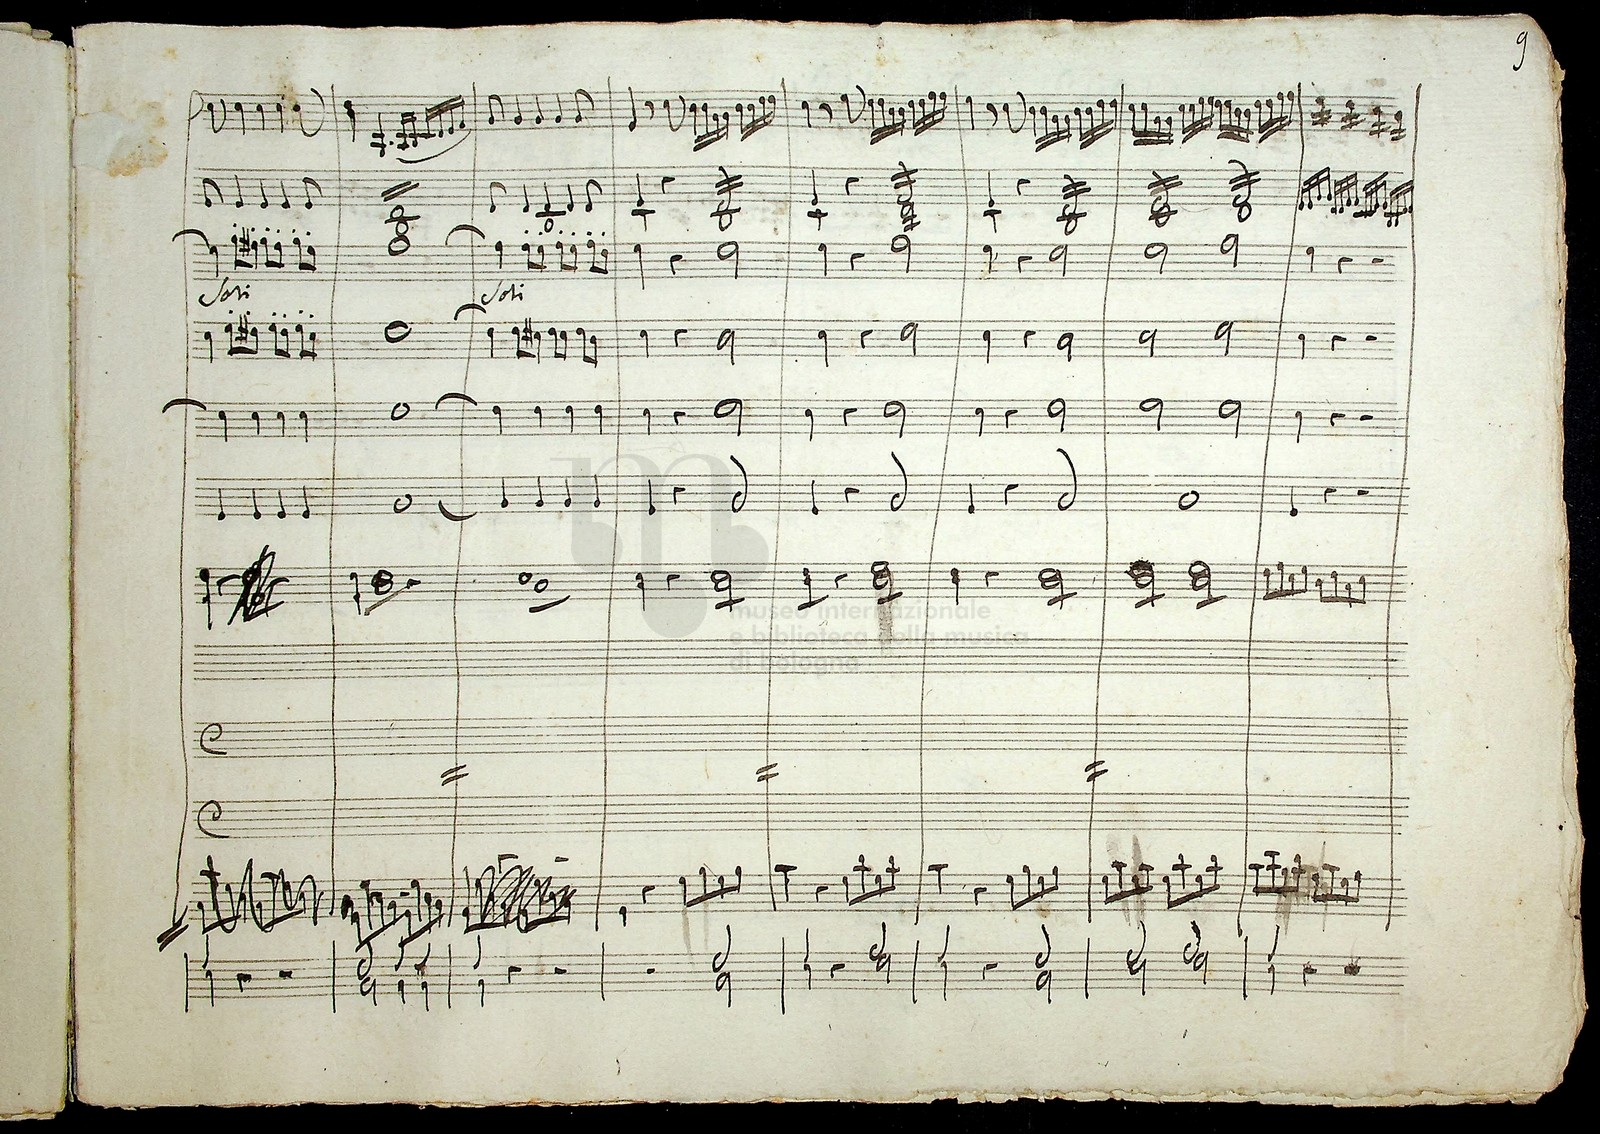 9
Soli
Soli
museo internazionale
e biblioteca della musica
di bologna